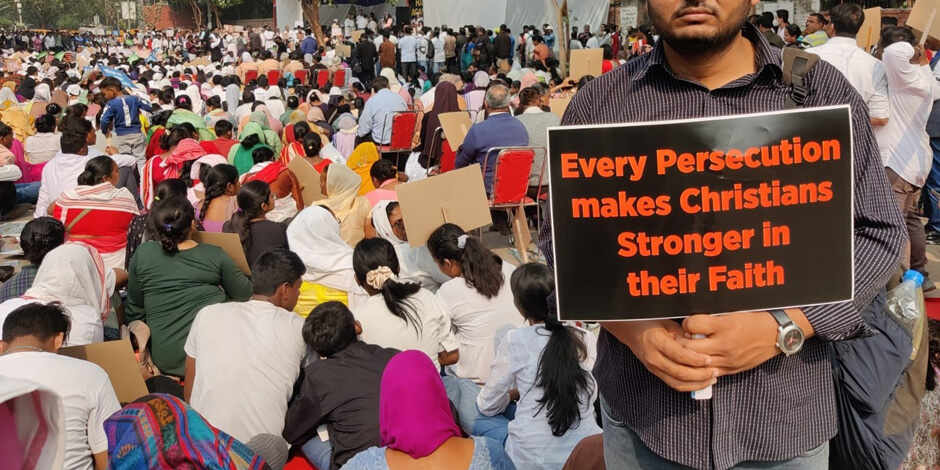 Every Persecution
makes Christians
Stronger in
their Faith